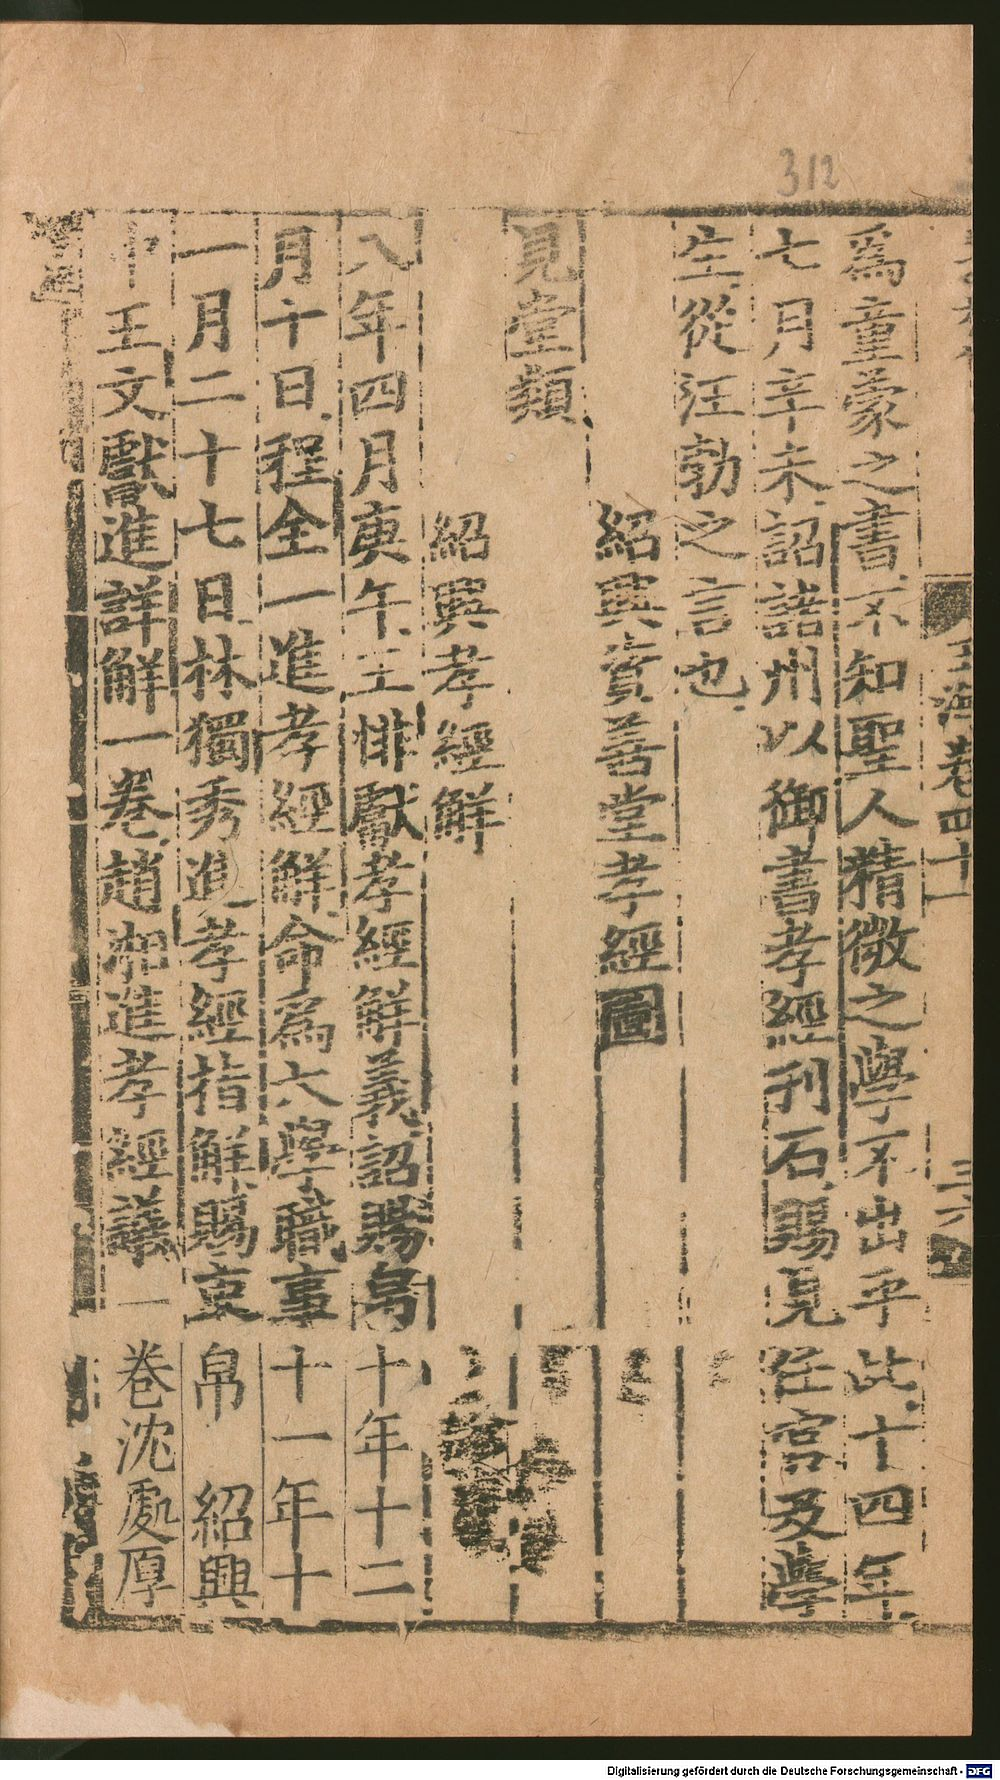 312
爲童蒙之書不知聖人精微之學不出乎此十四年
七月辛未詔諸州以御書孝經刊石賜見任官及學
生從汪勃之言也
紹興資善堂孝經圖
見堂類
紹興孝經解
八年四月庚午王悱獻孝經解義詔賜帛十年十二
月十日程全一進孝經解命爲六學職事十一年十
一月二十七日林獨秀進孝經指解賜束帛 紹興
中王文獻進詳解一卷趙湘進孝經議一卷沈處厚
玉海卷四十一
三六
Digitalisierung gefördert durch die Deutsche Forschungsgemeinschaft - DFG